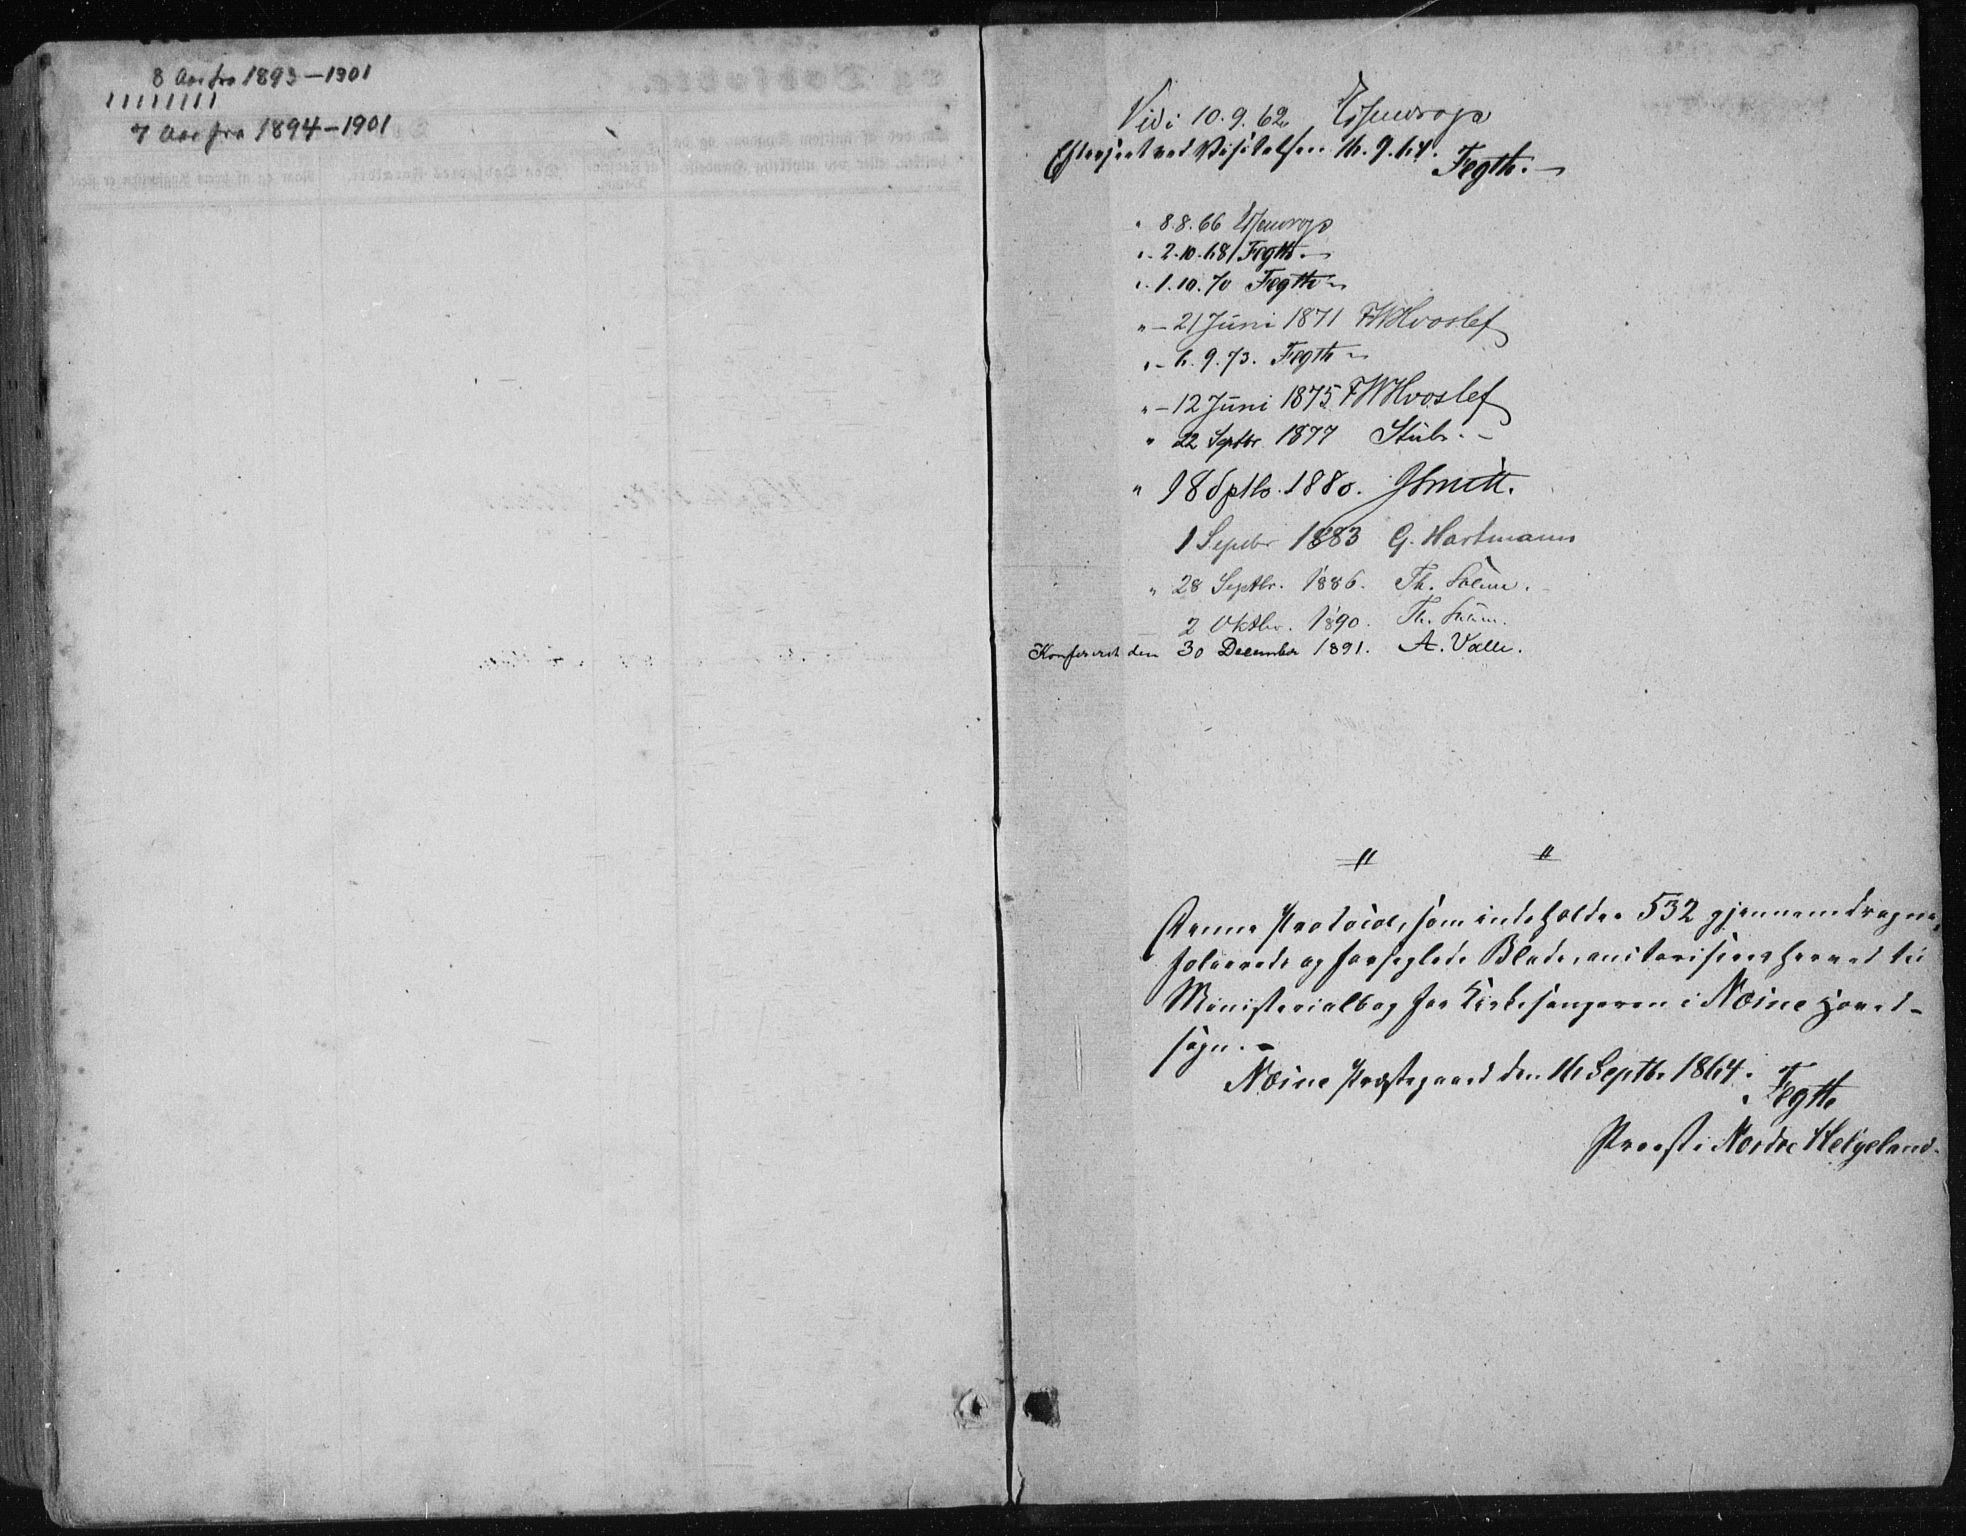 8 Aar fra 1893–1901
7 Aar fra 1894–1901
Vidi 10.9.62 Essendrop
Efterseet ved Visitatsen 16.9.64. Fegth.
" 8.8.66 Essendrop
" - 2.10.68 Fegth.
" - 1.10.70 Fegth
" - 21 Juni 1871 FWHvoslef
" - 6.9.73. Fegth
" - 12 Juni 1875 FWHvoslef
" 22 Septbr 1877 Stub.
" 18 Sptb. 1880. JSmitt.
1 Septbr 1883 G. Hartmann
" 28 Septbr. 1886. Th.
2 Oktbr. 1890. Th.
Konfereret den 30 December 1891. A. Valle.
Denne Protocol, som indeholder 532 gjennemdragne,
folierede og forseglede Blade, autoriseres herved til
Ministerialbog for Kirkesangeren i Næsne Hoved-
sogn. -
Næsne Præstegaard den 16 Septb. 1864.
Fegth
Provst i Nordre Helgeland.